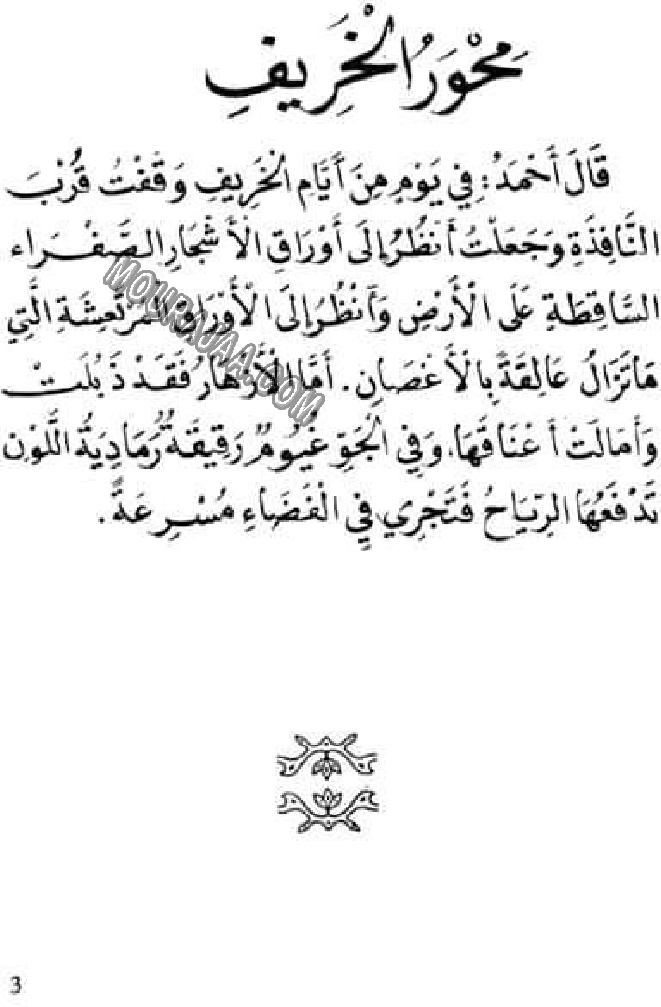 مَحْوَرُ الْخَرِيفِ
قَالَ أَحْمَدُ: فِي يَوْمٍ مِنَ أَيَّامِ الْخَرِيفِ وَقَفْتُ قُرْبَ
النَّافِذَةِ وَجَعَلْتُ أَنْظُرُ إِلَى أَوْرَاقِ الْأَشْجَارِ الصَّفْرَاء
السَّاقِطَةِ عَلَى الْأَرْضِ وَأَنْظُرُ إِلَى الْأَوْرَاقِ الْمُرْتَعِشَةِ الَّتِي
مَا تَزَالُ عَالِقَةً بِالْأَغْصَانِ. أَمَّا الْأَزْهَارُ فَقَدْ ذَبُلَتْ
وَأَمَالَتْ أَعْنَاقَهَا، وَفِي الْجَوِّ غُيُومٌ رَقِيقَةٌ رُمَادِيَةُ اللَّوْنِ
تَدْفَعُهَا الرِّيَاحُ فَتَجْرِي فِي الْفَضَاءِ مُسْرِعَةً.
MOURAJAA.COM
3